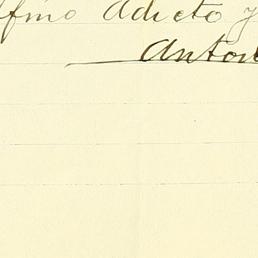 Affmo Adicto y
Anton